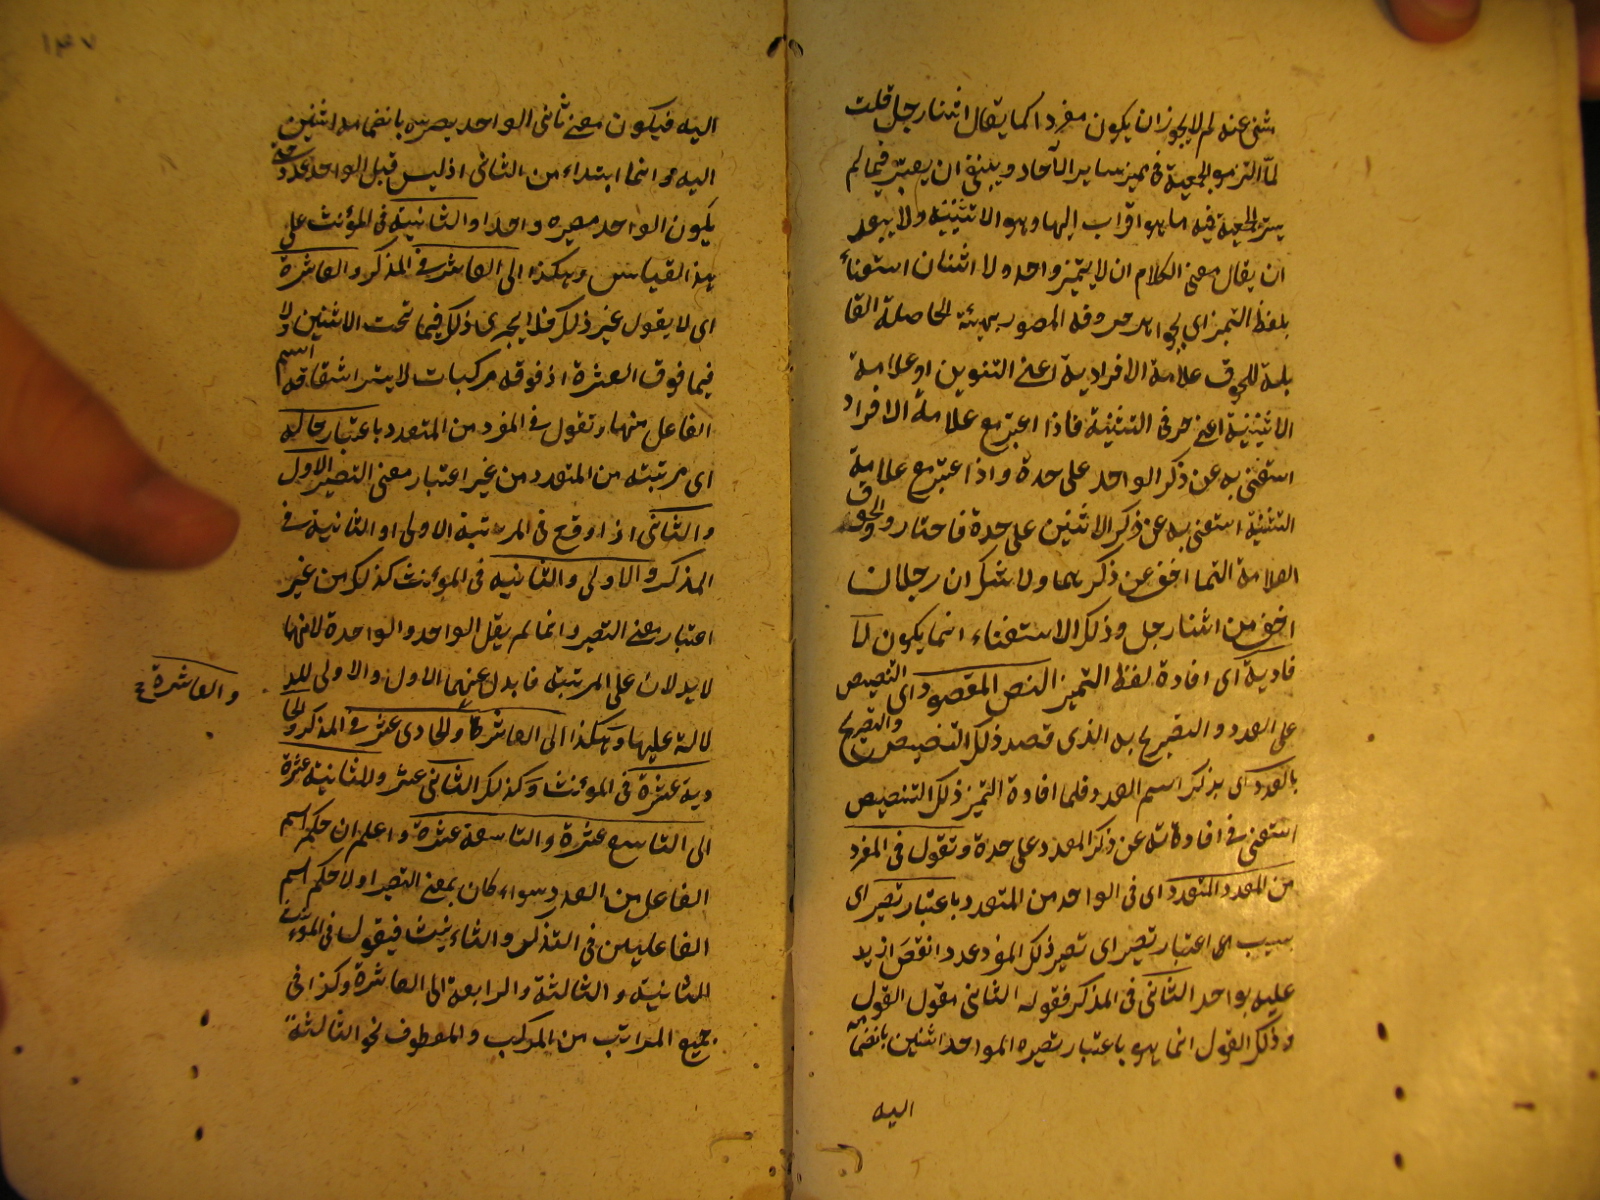 شئ عنه لم لا يجوز ان يكون مفردا كما يقال اثنا رجل قلت
لما التزموا الجمعية في مميز ساير الآحاد وينبغي ان يعبر فيما لم
يتيسر الجمعية فيه ما هو اقرب اليها وهو الاثنينية ولا يبعد
ان يقال معنى الكلام ان لا يتميز واحد ولا اثنان استغناء
بلفظ التميز اي بجواهر حروفه المصور بهيئة الحاصلة القا
بلة للحوق علامة الافرادية اعني التنوين او علامة
الاثنينية اعني حرفي التثنية فاذا اعتبر مع علامة الافراد
استغنى به عن ذكر الواحد على حدة واذا اعتبر مع علامة
التثنية استغنى به عن ذكر الاثنين على حدة فاختاروا لحوق
العلامة التما اخف عن ذكرهما ولا شك ان رجلان
اخف من اثنا رجل وذلك الاستغناء انما يكون لا
فادته اي افادة لفظ التميز النص المقصود اي التنصيص
على العدد والتصريح به الذي قصد ذلك التنصيص والتصريح
بالعدد اي بذكر اسم العدد فلما افادة التميز ذلك التنصيص
استغنى في افادته عن ذكر العدد على حدة وتقول في المفرد
من العدد المتعدد اي في الواحد من المتعدد باعتبار تصييره اي
بسبب اعتبار تصييره اي تصيير ذلك المفرد عددا انقص ازيد
عليه بواحد الثاني في المذكر فقوله الثاني مقول القول
وذلك القول انما هو باعتبار تصييره الواحد اثنين بانضمامه
اليه
١٤٧
اليه فيكون معنى ثاني الواحد مصيره بانضمامه اثنين
اليه وانما ابتداء من الثاني اذ ليس قبل الواحد عدد حتى
يكون الواحد مصيره واحدا والثانية في المؤنث على
هذا القياس وهكذا الى العاشر في المذكر والعاشرة
اي لا يقول غير ذلك فلا يجري ذلك فيما تحت الاثنين ولا
فيما فوق العشرة اذ فوقه مركبات لا يتيسر اشتقاق اسم
الفاعل منها وتقول في المفرد من المتعدد باعتبار حاله
اي مرتبته من المتعدد من غير اعتبار معنى التصيير الاول
والثاني اذا وقع في المرتبة الاولى او الثانية في
المذكر والاولى والثانية في المؤنث كذلك من غير
اعتبار معنى التصيير وانما لم يقل الواحد والواحدة لانهما
لا يدلان على المرتبة فابدل عنهما الاول والاولى للد
لالة عليها وهكذا الى العاشر والحادي عشر في المذكر والحا
دية عشرة في المؤنث وكذلك الثاني عشر والثانية عشرة
الى التاسع عشرة والتاسعة عشرة واعلم ان حكم اسم
الفاعل من العدد سواء كان بمعنى التصيير او لا حكم اسم
الفاعلين في التذكير والتأنيث فيقول في المؤنث
الثانية والثالثة والرابعة الى العاشرة وكذا في
جميع المراتب من المركب والمعطوف نحو الثالثة
والعاشرة